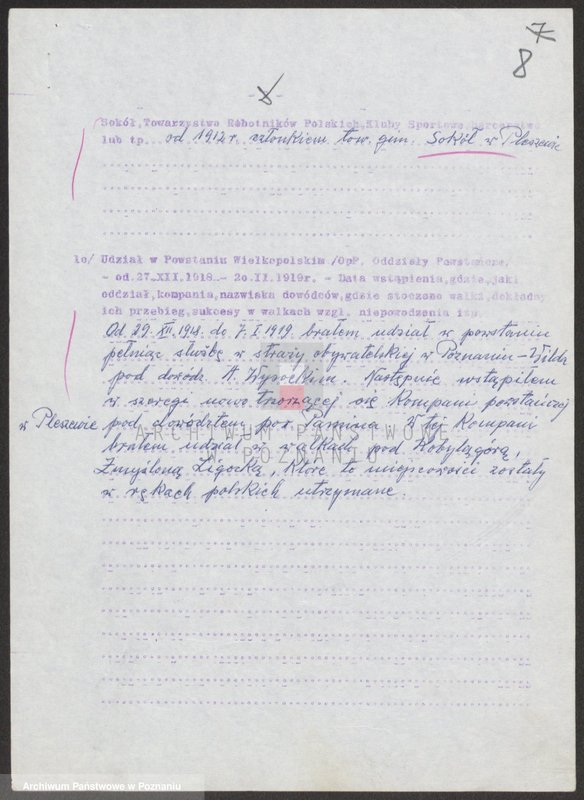 7
8
Sokół,Towarzystwo Robotników Polskich,Kluby Sportowe,harcerstwo
lub tp... od 1912 r. członkiem tow. gim. Sokół w Pleszewie
10/ Udział w Powstaniu Wielkopolskim /OpP. Oddziały Powstańcze,
- od 27.XII.1918.- 20.II.1919r. - Data wstąpienia,gdzie,jaki
oddział,kompania,nazwiska dowódców,gdzie stoczone walki,dokładny
ich przebieg,sukcesy w walkach wzgl. niepowodzenia itp.
Od 29. XII. 1918. do 7. I 1919. brałem udział w powstaniu
pełniąc służbę w straży obywatelskiej w Poznaniu - Wilda
pod dowódz. A. Wysockim. Następnie wstąpiłem
w szeregi nowo tworzącej się Kompani powstańczej
w Pleszewie pod dowództem por. W tej Kompani
brałem udział w walkach pod Kobylągórą,
Zmyśloną Ligocką, które to miejscowości zostały
w rękach polskich utrzymane.
ARCHIWUM PAŃSTWOWE
W POZNANIU
Archiwum Państwowe w Poznaniu